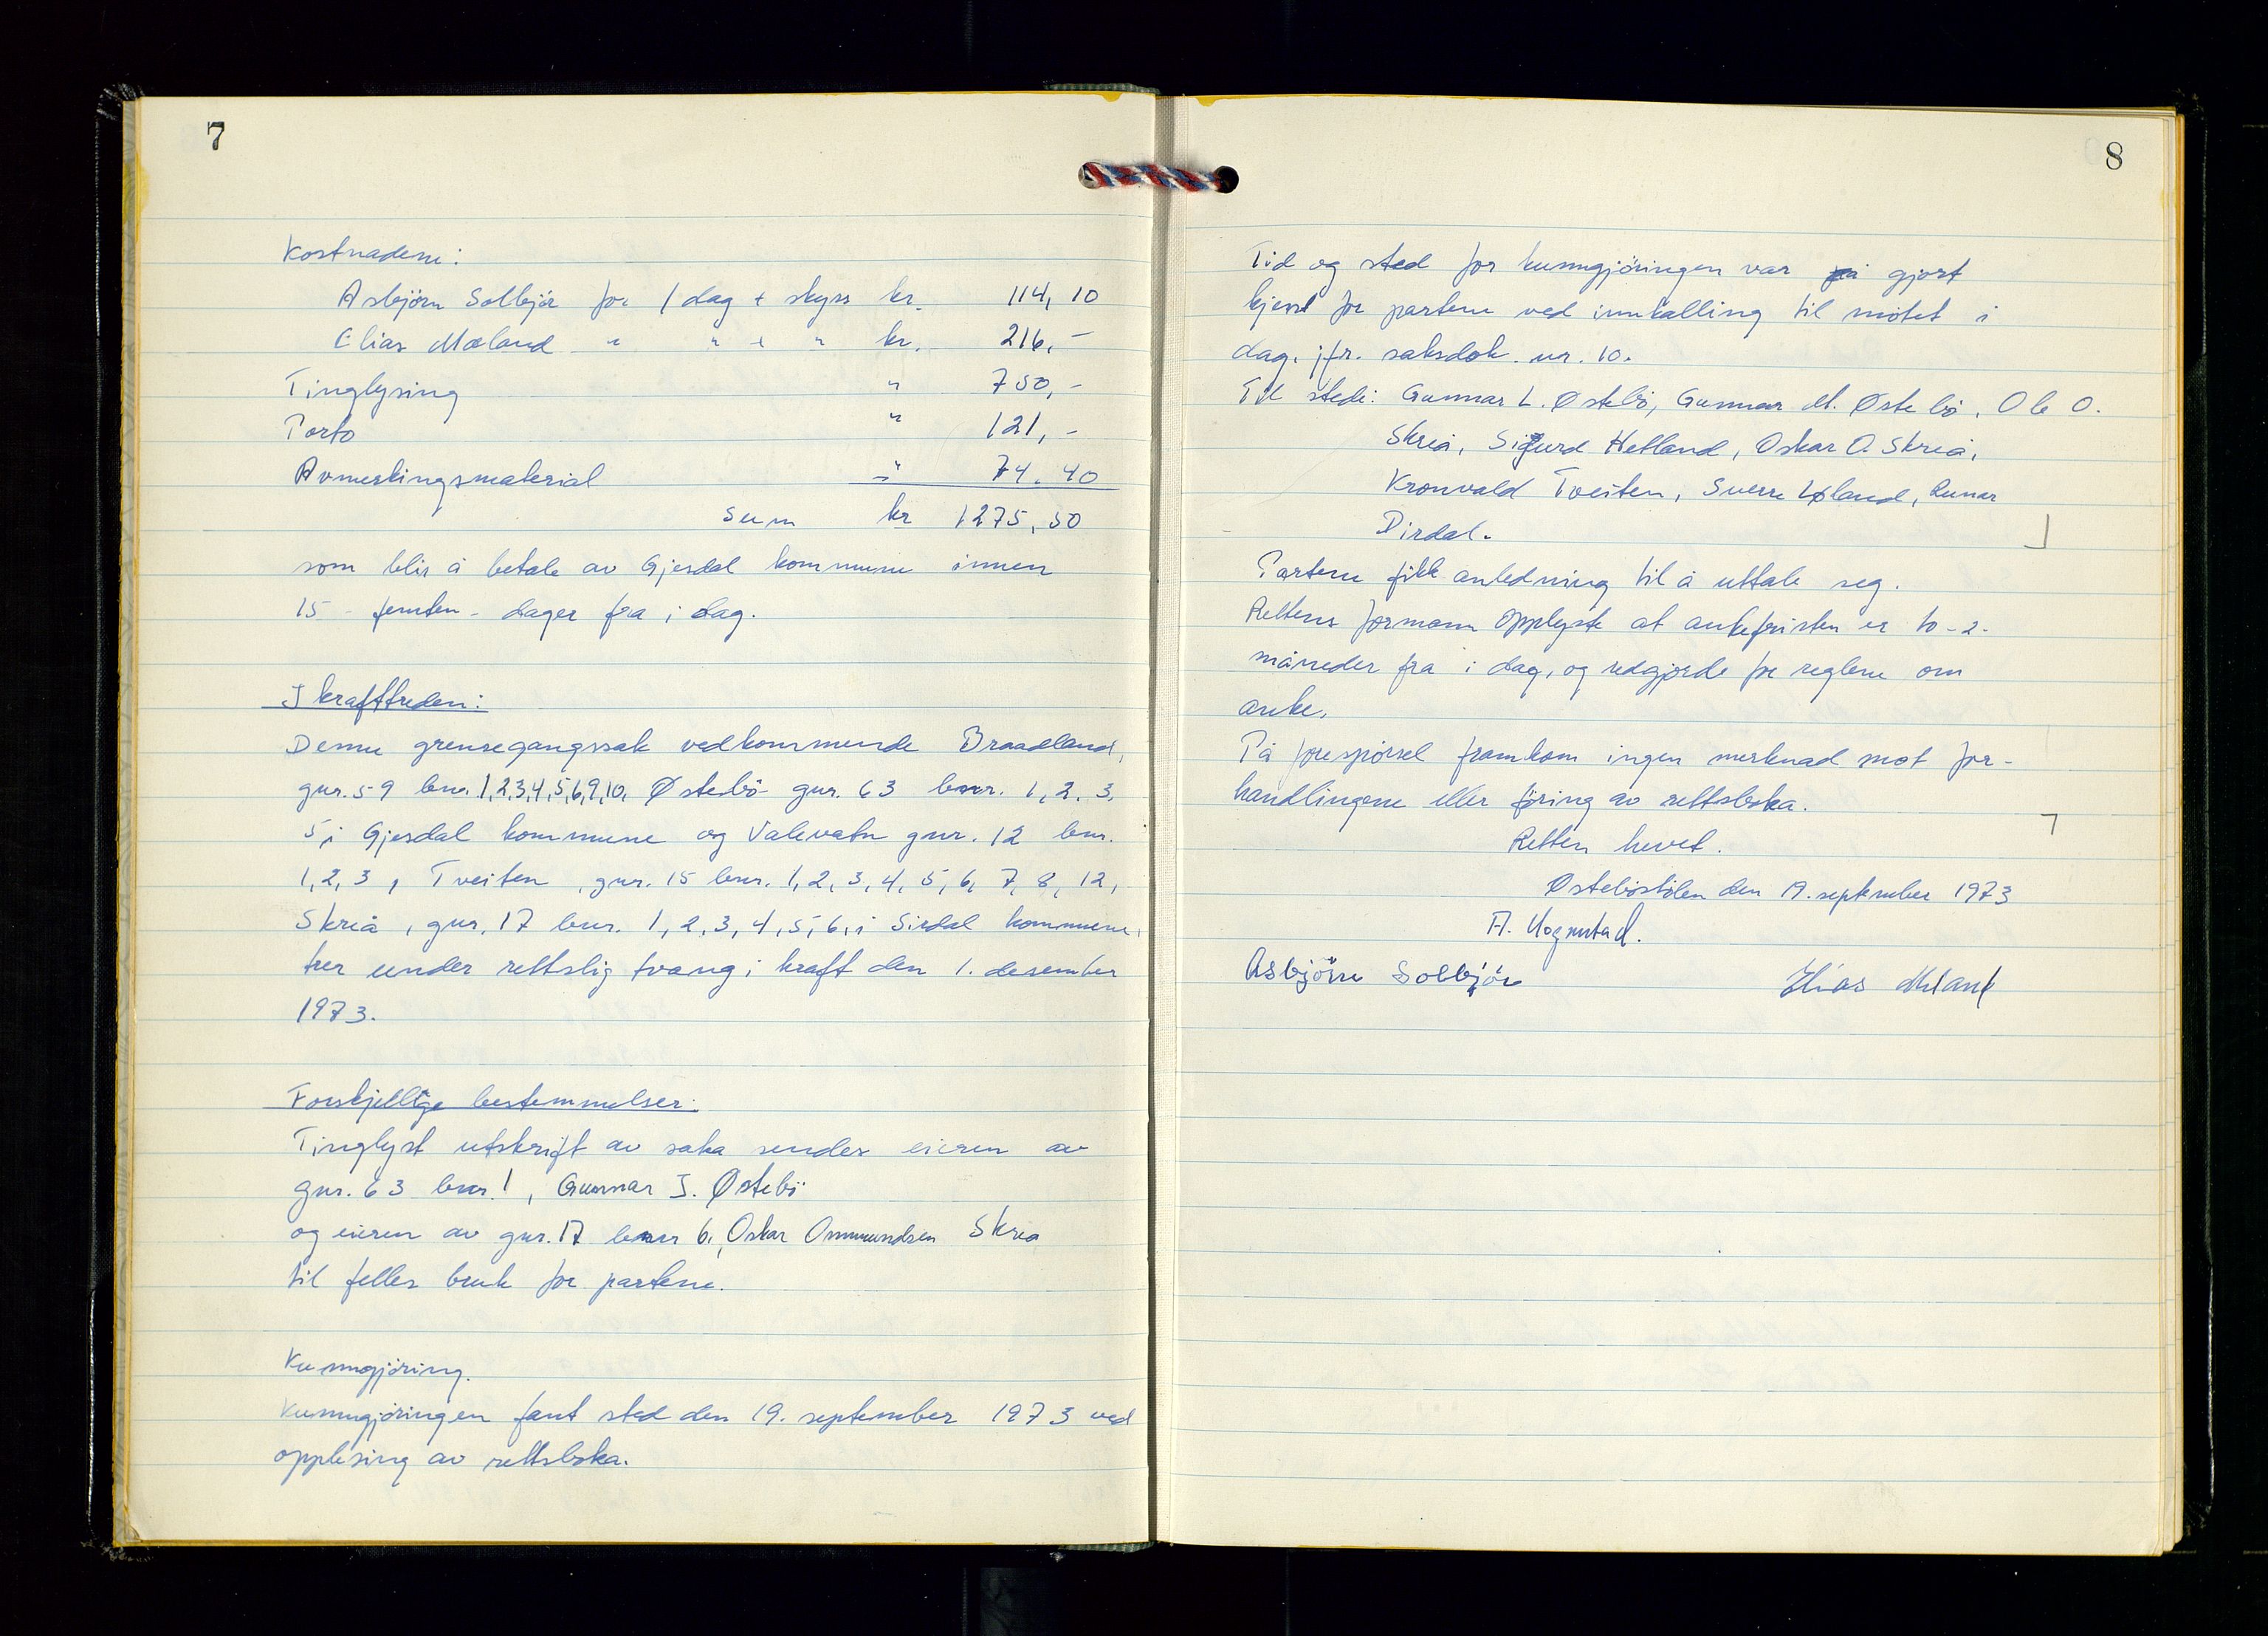 7
Kostnadene:
Asbjörn Solbjör for 1 dag + skyss kr. 114,10
Elias Mæland " " + " kr. 216,-
Tinglysing " 750,-
Porto " 121,-
Avmerkingsmaterial " 74.40
Sum kr 1275,50
som blir å betale av Gjesdal kommune innen
15 - femten - dager fra i dag.
Ikrafttreden:
Denne grensegangssak vedkommende Braadland,
gnr. 59 bnr. 1,2,3,4,5,6,9,10, Østebö gnr. 63 bnr. 1, 2, 3,
5 i Gjesdal kommune og Valevatn gnr. 12 bnr.
1,2,3, Tveiten, gnr. 15 bnr. 1, 2, 3, 4, 5, 6, 7, 8, 12,
Skreå, gnr. 17 bnr. 1, 2, 3, 4, 5, 6, i Sirdal kommune,
trer under rettslig tvang i kraft den 1. desember
1973.
Forskjellige bestemmelser:
Tinglyst utskrift av saka sendes eieren av
gnr. 63 bnr. 1, Gunnar I. Østebö
og eieren av gnr. 17 bnr 6, Oskar Ommundsen Skreå
til felles bruk for partene.
Kunngjöring.
Kunngjöringen fant sted den 19. september 1973 ved
opplesing av rettsboka.
8
Tid og sted for kunngjöringen var på gjort
kjent for partene ved innkalling til mötet i
dag, jfr. saksdok. nr. 10.
Til stede: Gunnar L. Østebö, Gunnar M. Østebö, Ole O.
Skreå, Sigurd Hetland, Oskar O. Skreå,
Kronvald Tveiten, Sverre Løland, Runar
Dirdal.
Partene fikk anledning til å uttale seg.
Rettens formann opplyste at ankefristen er to - 2 -
måneder fra i dag, og redgjorde for reglene om
anke.
På forespörsel framkom ingen merknad mot for-
handlingene eller föring av rettsboka.
Retten hevet.
Østeböstölen den 19. september 1973
A. Hognestad.
Asbjörn Solbjör Elias Mæland